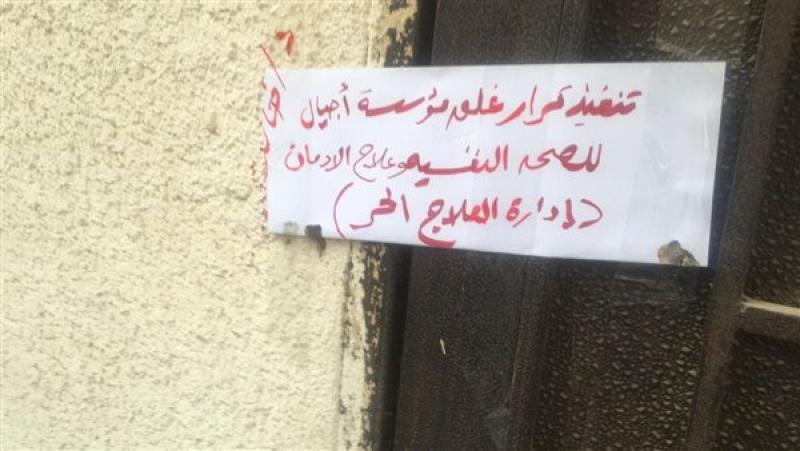 تنفيذ قرار غلق مؤسسة أجيال
للصحه النفسيه وعلاج الادمان
(ادارة العلاج الحر)